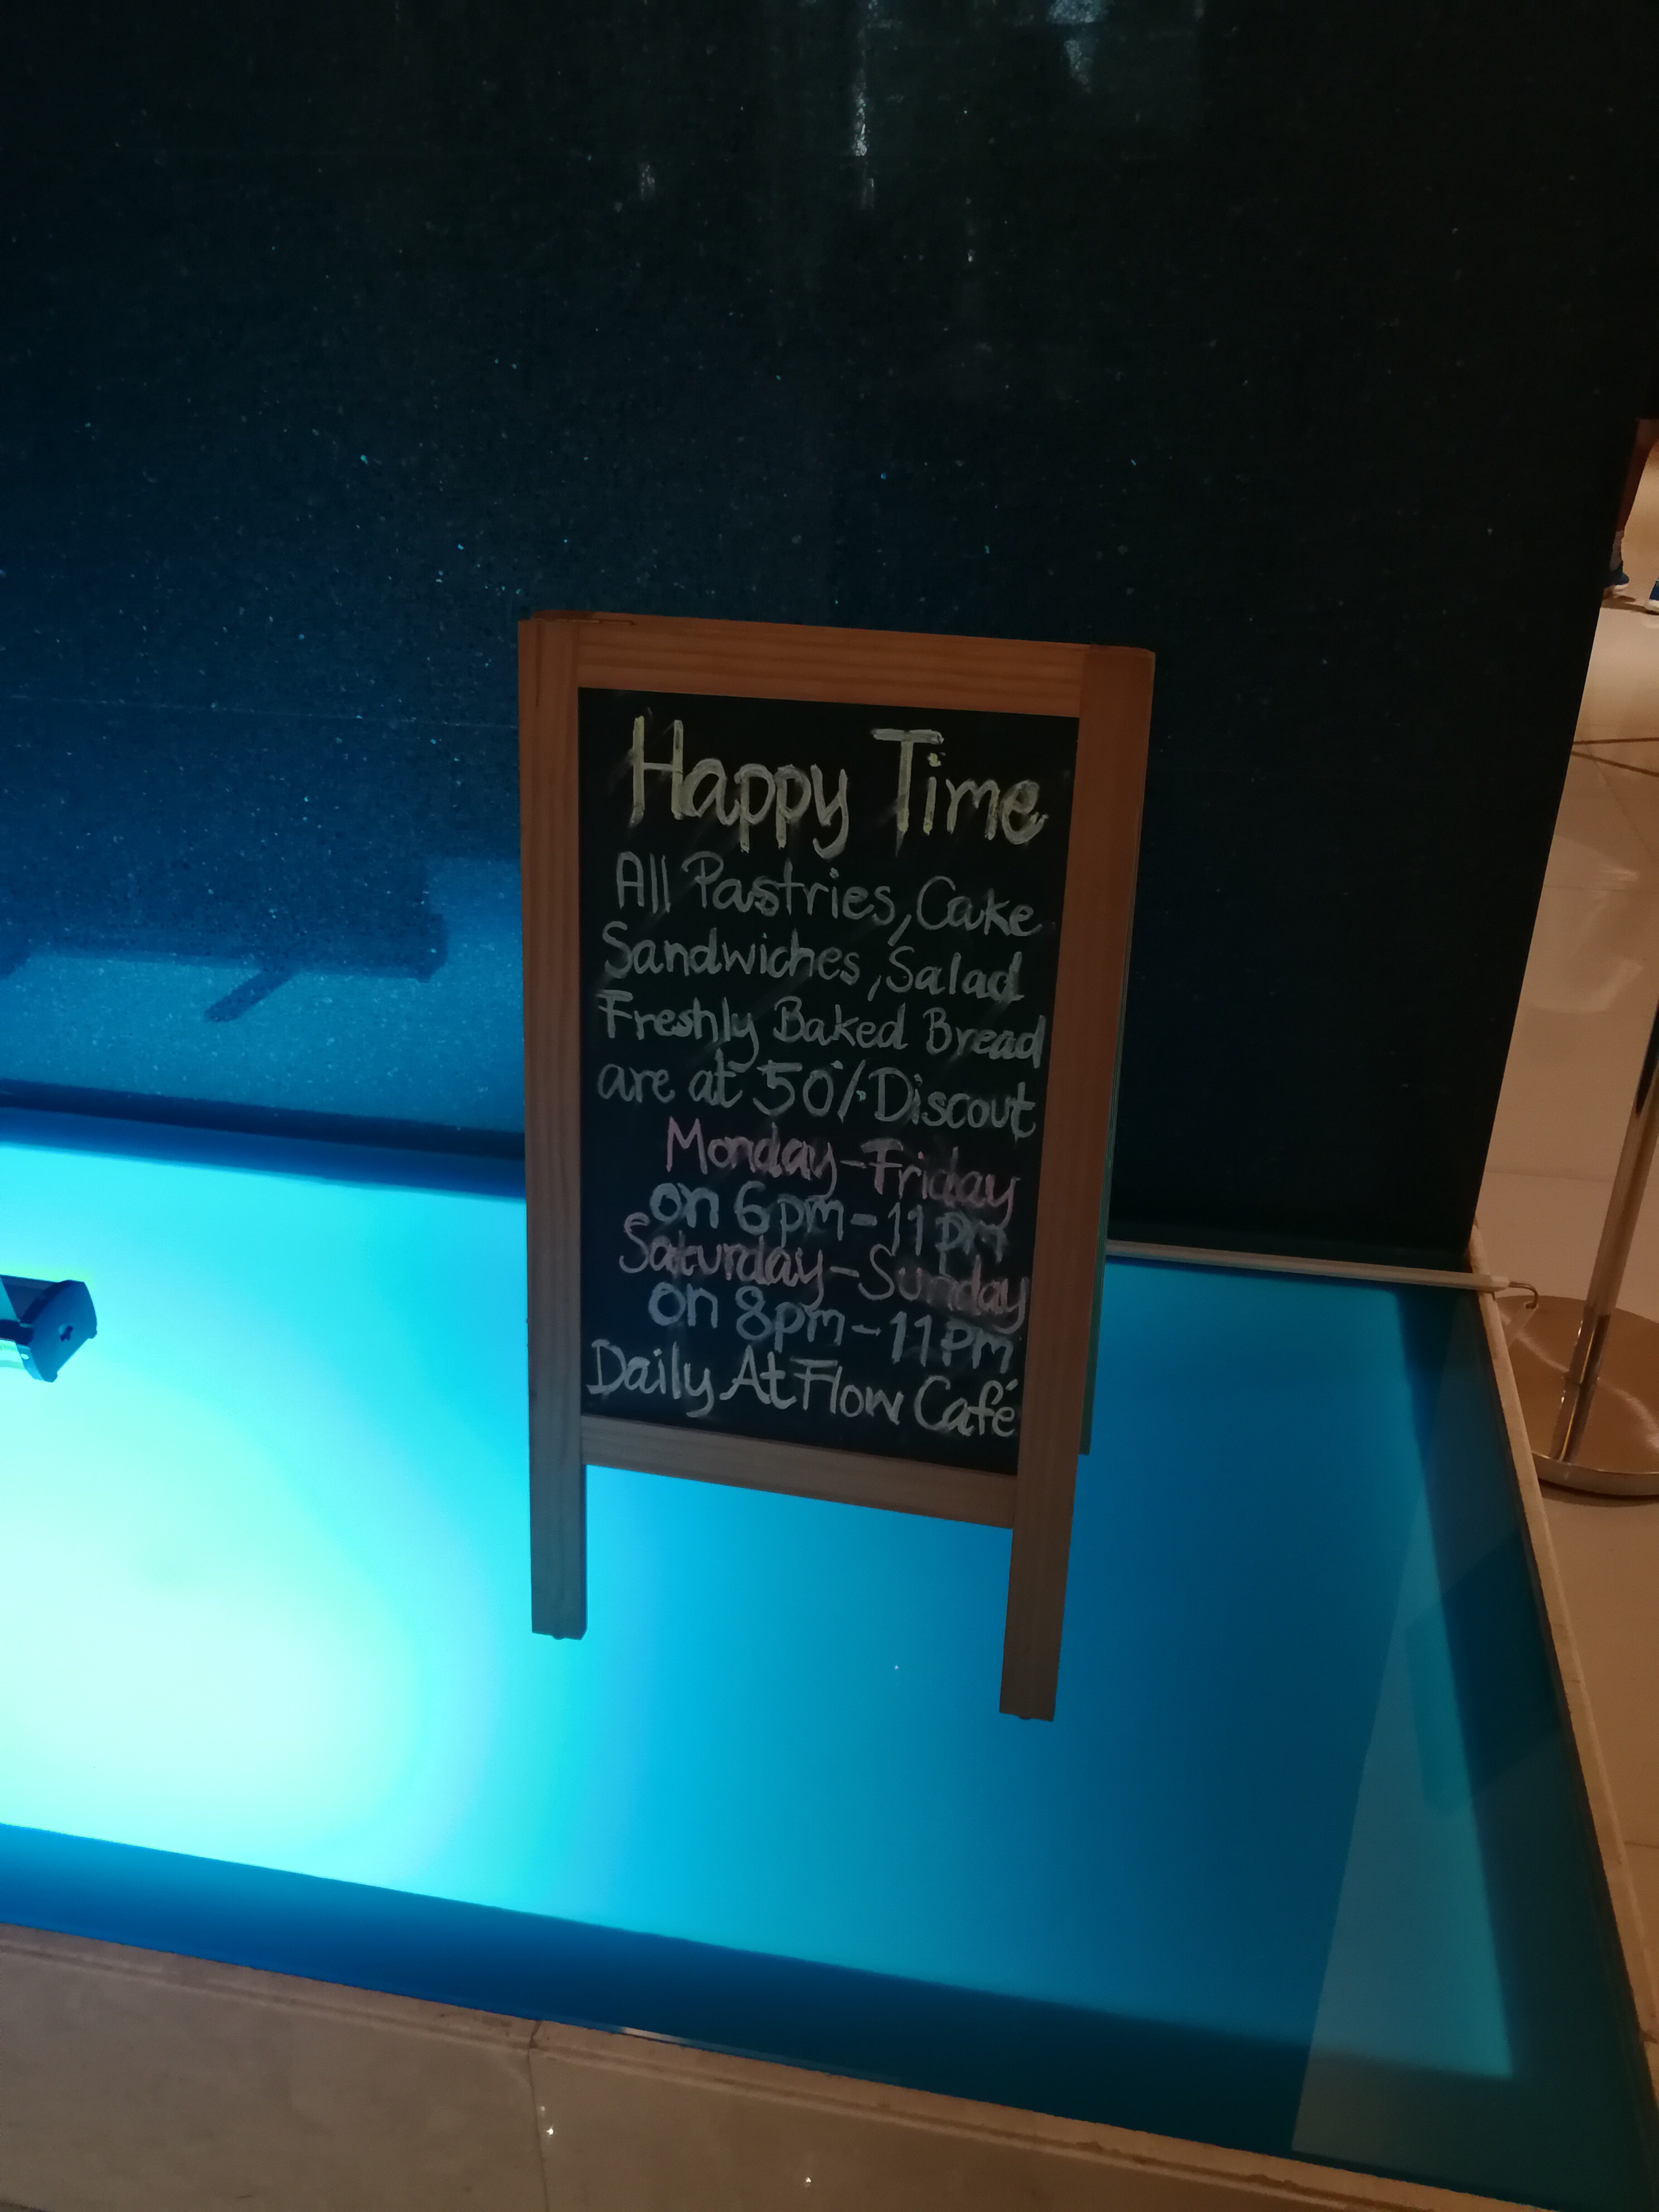 Happy Time
All Pastries, Cake
Sandwiches, Salad
Freshly Baked Bread
are at 50% Discout
Monday-Friday
on 6pm-11pm
Saturday-Sunday
on 8pm-11pm
Daily At Flow Café